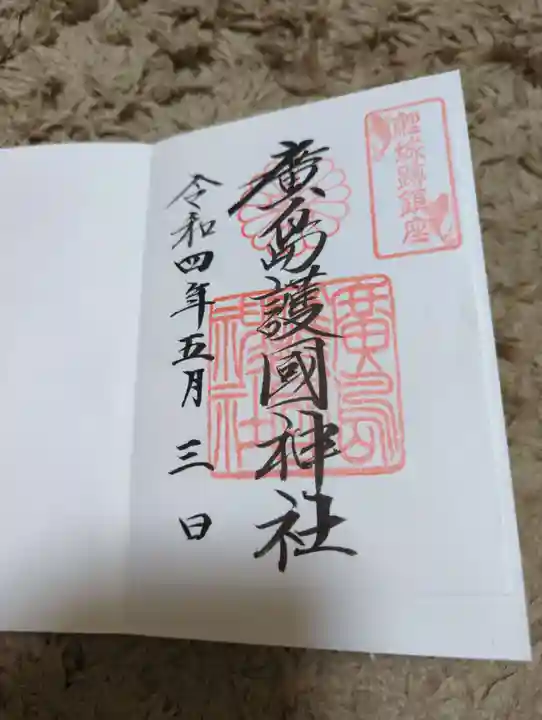 鯉城跡鎮座
廣島護國神社
令和四年五月三日
廣島護國神社